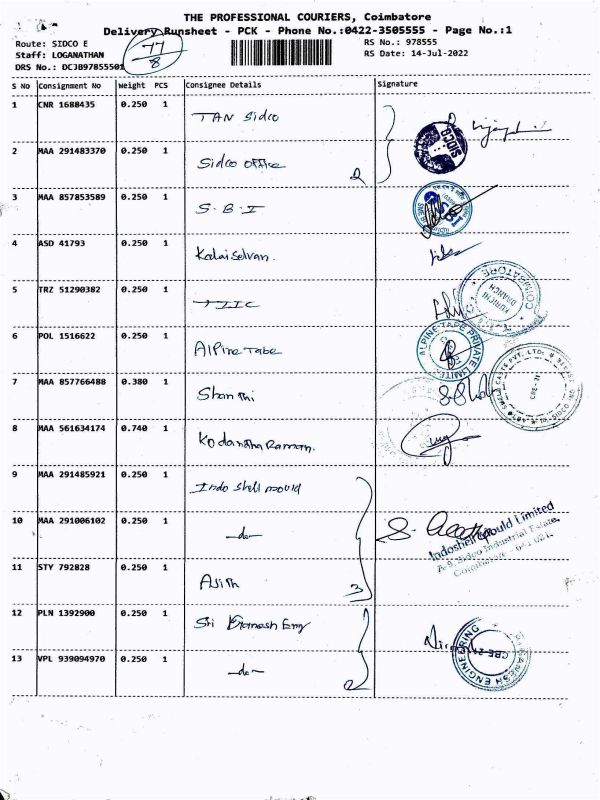 THE PROFESSIONAL COURIERS, Coimbatore
Delivery Runsheet - PCK - Phone No.:0422-3505555 - Page No.:1
Route: SIDCO E
Staff: LOGANATHAN
DRS No.: DCJB97855501
77
8
RS No.: 978555
RS Date: 14-Jul-2022
S No Consignment No Weight PCS Consignee Details Signature
1 CNR 1688435 0.250 1 TAN Sidco
2 MAA 291483370 0.250 1 Sidco office 2
SIDCO
3 MAA 857853589 0.250 1 S.B.I
4 ASD 41793 0.250 1 Kalaiselvan.
5 TRZ 51290382 0.250 1 TIIC
COIMBATORE
KURICHI
BRANCH
6 POL 1516622 0.250 1 Alpine Tabe
ALPINE TAPE PRIVATE LIMITED
7 MAA 857766488 0.380 1 Shanthi
CBE-21
8 MAA 561634174 0.740 1 Kodantha Raman.
9 MAA 291485921 0.250 1 Indo shell mould
10 MAA 291006102 0.250 1 -do-
Indoshell Mould Limited
A-9, Sidco Industrial Estate,
Coimbatore - 641 021.
11 STY 792828 0.250 1 Ajith 3
12 PLN 1392900 0.250 1 Sri Ganesh Eng
13 VPL 939094970 0.250 1 -do- 2
GANESH ENGINEERING
CBE-21